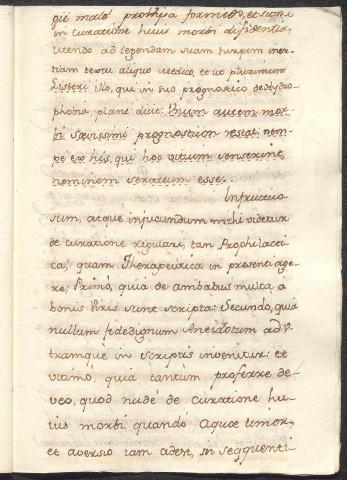 qui malé prolixia formido, et sum
in curatione huius morbi disidentia,
utendo ad tegendam suam turpem iner-
tiam textu aliquo Medico, et ut plurimum
Listeri illo, qui in suo prognostico de hydro-
phobia, plané dicit: Unum autem mor-
bi Sævissimi prognosticon restat, nem-
pé ex his, qui hoc vitium senserint,
neminem servatum esse.
Infructuo
sum, atque injucundum mihi videtur
de curatione regulari, tam Prophilacti
ca, quam Therapeutica in presenti age-
re; Primó, quia de ambabus multa a
bonis Viris sunt scripta: Secundo, quia
nullum fidedignum Antidotum ad v-
tramque in scriptis invenitur: et
ultimó, quia tantúm proferre de-
veo, quod nudé de curatione hu-
ius morbi, quandó aquæ timor,
et aversio iam adest, in seqquenti-